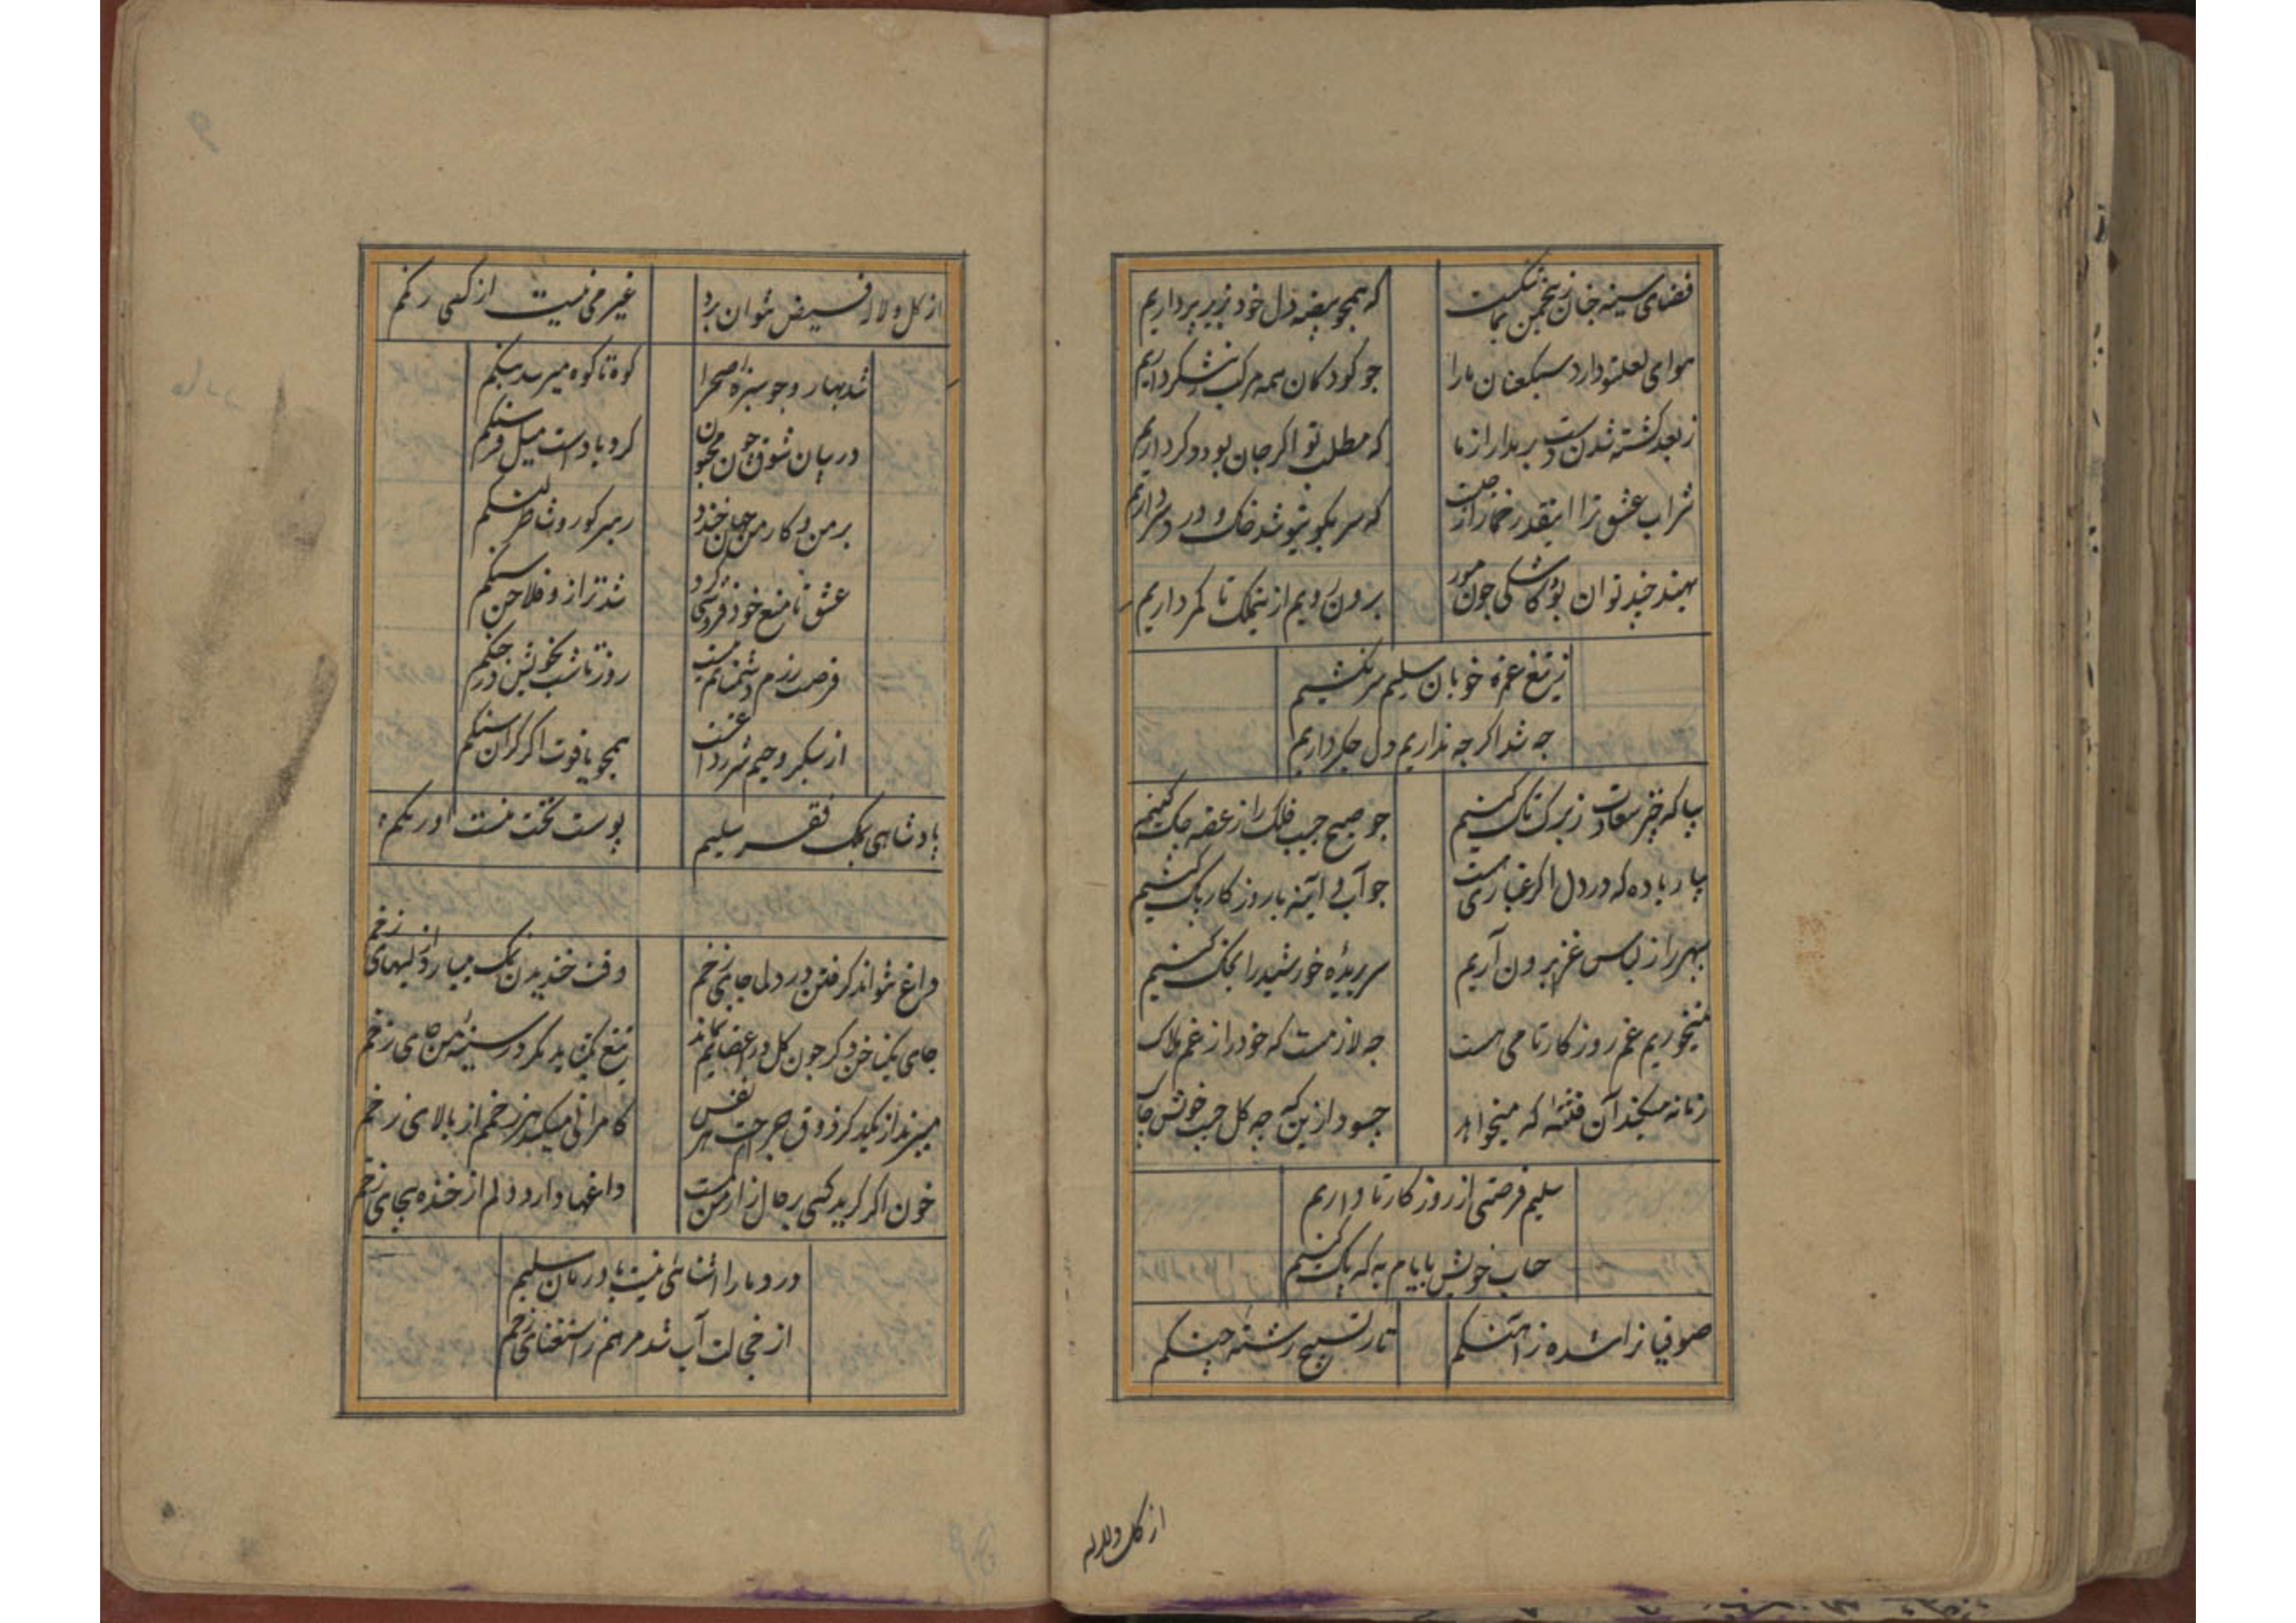 فضای سینه چنان زخم من نکست
که همچو بیضه دل خود زیر پر داریم
هوای لعل تو دارد سبکعنان ما را
جو کودکان همه مرکب ز نیشکر داریم
ز بعد کشته شدن دست بر مدار از ما
که مطلب تو اکر جان بود دکر داریم
شراب عشق ترا اینقدر خمار از چیست
که سر بکوی تو شد خاک و درد سر داریم
بهند چند توان بود کاشکی جون مور
برون رویم ازین ملک تا کمر داریم
ز تیغ غمزه خوبان سلیم سر نکشیم
جه شد اکر جه نداریم دل جکر داریم
بیا که چتر سعادت ز برک تاک کنیم
جو صبح جیب فلک را ز غصه جاک کنیم
بیار باده که در دل اکر غباری هست
جو آب آینه با روزکار پاک کنیم
سپهر را ز لباس غرور برون آریم
سر بریدهٔ خورشید را بخاک کنیم
نمیخوریم غم روزکار تا می هست
جه لازمست که خود را ز غم هلاک
زمانه میکند آن فتنهٔ که میخواهد
جسود ازین که جه کل جیب خویش چاک
سلیم فرصتی از روزکار تا داریم
حساب خویش بایام به که پاک کنیم
صوفیانرا شده ز آهنکم
تار تسبیح رشته جنکم
از کل و لاله
از کل و لاله فیض نتوان برد
غیر می نیست از کسی رنکم
شد بهار و جو سبزهٔ صحرا
کوه تا کوه میرسد بنکم
در بیابان شوق جون مجنون
کردبادست میل فرسنکم
بر من و کار من جهان خندد
رهبر کور و شاطر لنکم
عشق تا منع خود فروشی کرد
شد ترازو فلاخن سنکم
فرصت رزم دشمنانم نیست
روز تا شب بخویش در جنکم
از سبکروحیم شرر داغست
همچو یاقوت اکر کران سنکم
پادشاهی بملک فقر سلیم
پوست تخت منست اورنکم
داغ نتواند کرفتن در دلم جای زخم
وقت خندیدن نمک میبارد از لبهای زخم
جای یک ناخن دکر جون کل در اعضایم نماند
تیغ کین بد مکر در سینهٔ من جای زخم
میبرند از یکدکر ذوق جراحت هر نفس
کامرانی میکند هر زخم از بالای زخم
خون اکر کرید کسی بر حال زار من کمست
داغها دارد دلم از خنده بیجای زخم
درد ما را آشنائی نیست با درمان سلیم
از خجالت آب شد مرهم ز استغنای زخم